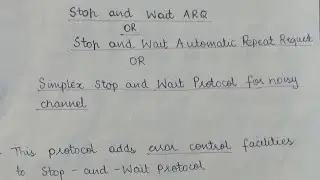 Stop and Wait ARQ
OR
Stop and Wait Automatic Repeat Request
OR
Simplex Stop and Wait Protocol for noisy
channel
- This protocol adds error control facilities
to Stop - and - Wait Protocol